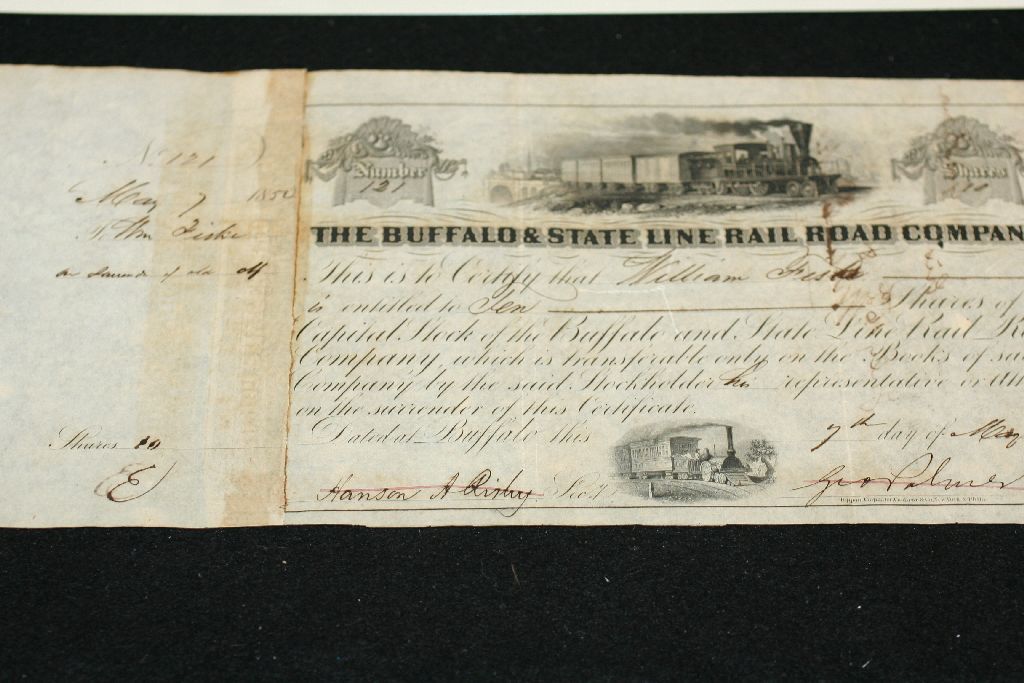 No 121
May 7 1850
To Wm Fiske
on Surrender of old
Shares 10
Number
121
Shares
THE BUFFALO & STATE LINE RAIL ROAD COMPAN
This is to Certify that William Fiske
is entitled to Ten Shares of
Capital Stock of the Buffalo and State Line Rail R
Company, which is transferable only on the Books of sa
Company by the said Stockholder his representative or Att
on the surrender of this Certificate.
Dated at Buffalo this 7th day of May
Hanson A Risley Secy Geo Palmer